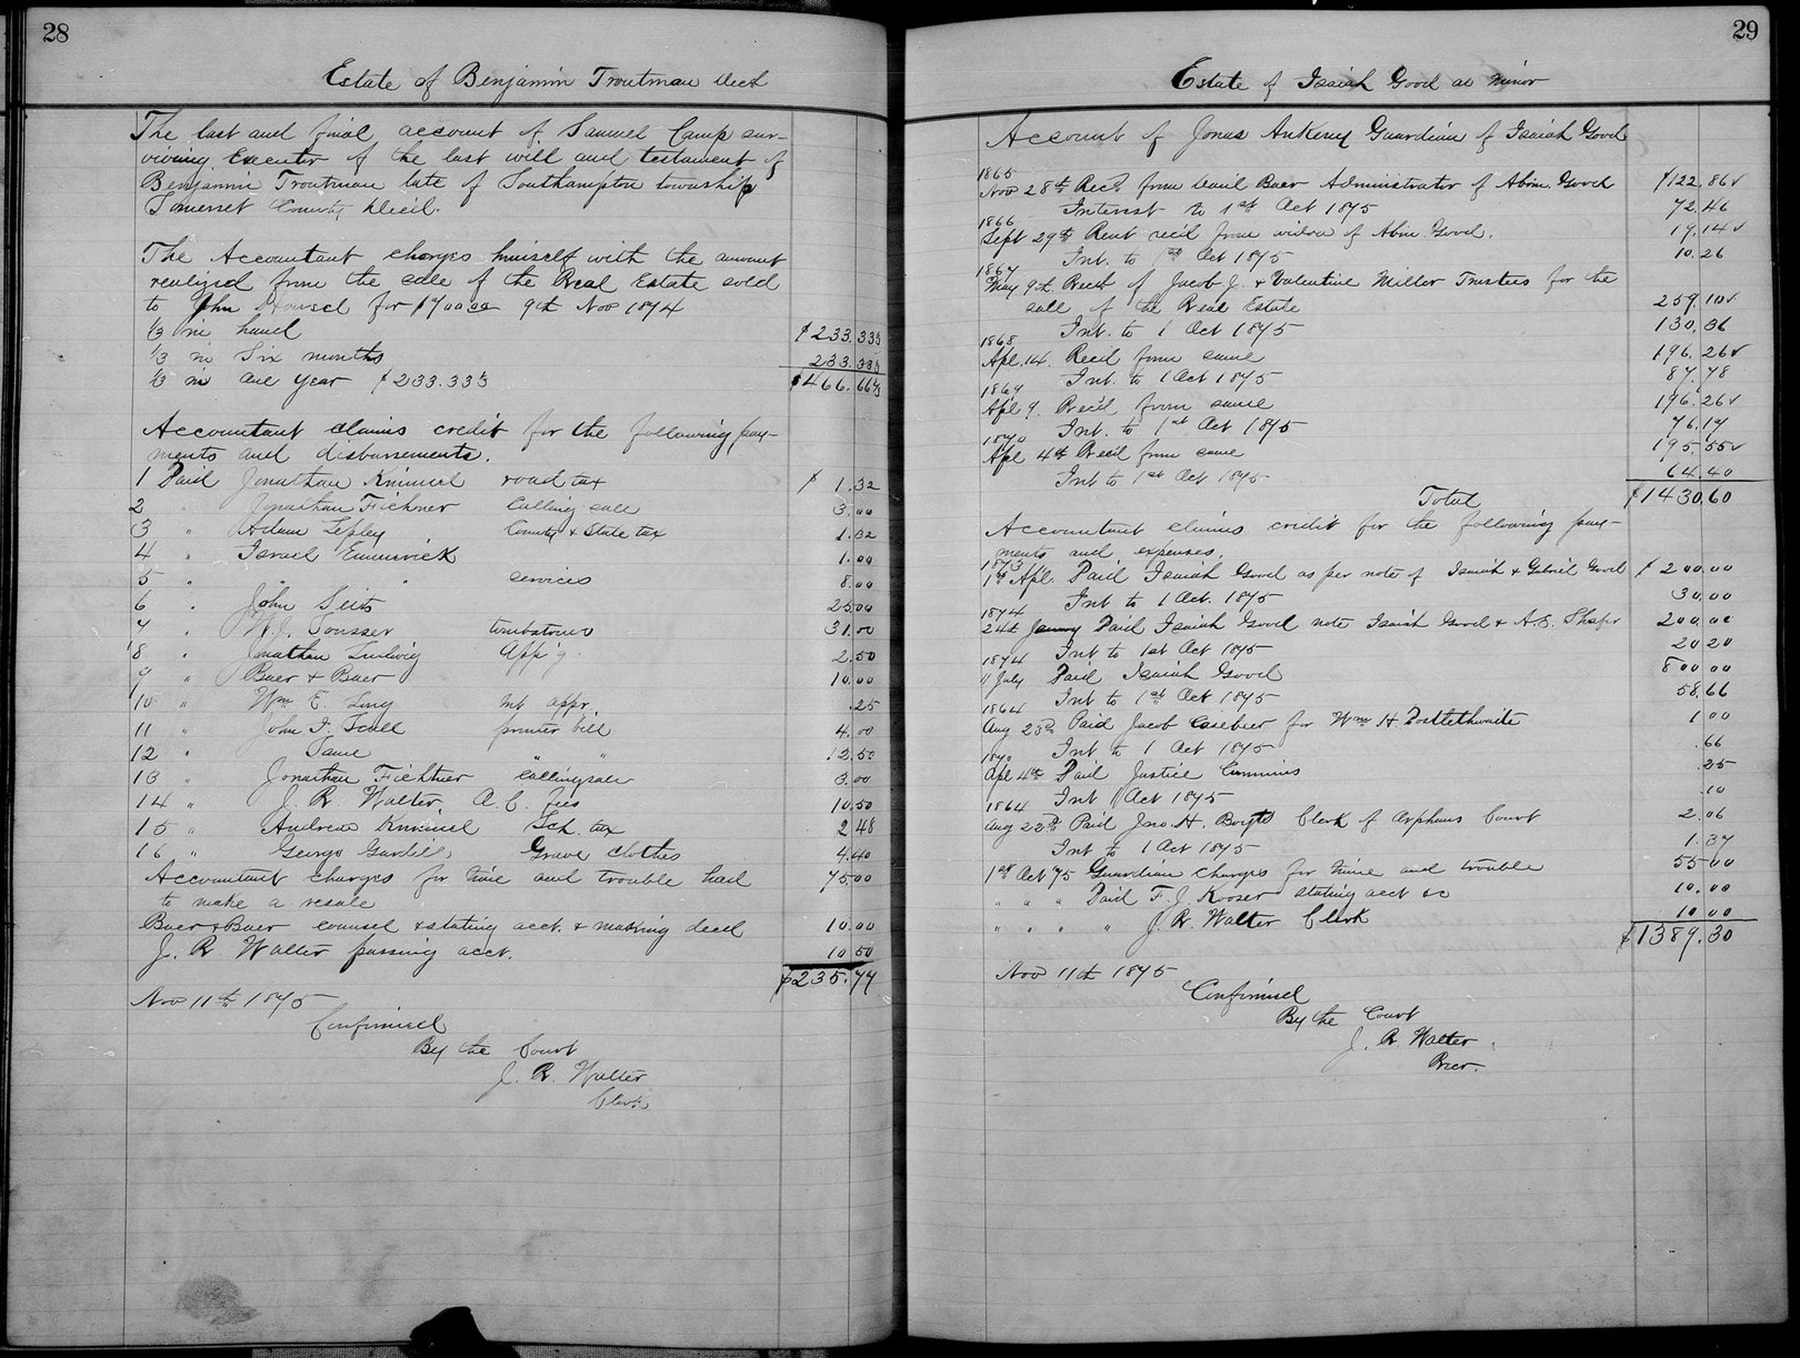 28
Estate of Benjamin Troutman Decd
The last and final account of Samuel Camp sur-
viving Executor of the last will and testament of
Benjamin Troutman late of Southampton township
Somerset County Dec'd.
The Accountant charges himself with the amount
realized from the sale of the Real Estate sold
to John Housel for $700.00 9th Nov 1874
1/3 in hand $233.33⅓
1/3 in Six months 233.33⅓
1/3 in One Year $233.33⅓ $466.66⅔
Accountant claims credit for the following pay-
ments and disbursements.
1 Paid Jonathan Kimmel road tax $1.32
2 " Jonathan Fichner calling sale 3.00
3 " Adam Lepley County & State tax 1.32
4 " Israel Emerick 1.00
5 " " " services 8.00
6 " John Seits 25.00
7 " W. J. tombstones 31.00
8 " Jonathan Ludwig App'g. 2.50
9 " Baer & Baer 10.00
10 " Wm E. Long Mt appr. .25
11 " John I. Scull printer bill 4.00
12 " Same " " 12.50
13 " Jonathan Fichtner calling sale 3.00
14 " J. R. Walter O. C. fees 10.50
15 " Andrew Kimmel Sch. tax 2.48
16 " George Grave clothes 4.40
Accountant charges for time and trouble had 75.00
to make a resale
Baer & Baer counsel & stating acct. & making deed 10.00
J. R. Walter passing acct. 10.50
$235.77
Nov 11th 1875
Confirmed
By the Court
J. R. Walter
Clerk
29
Estate of Isaiah Good a Minor
Account of Jonas Ankeny Guardian of Isaiah Good
1865
Nov 28th Recd from Danl Baer Administrator of Abm. Good $122.86✓
Interest to 1st Oct 1875 72.46
1866
Sept 29th Rent rec'd from widow of Abm. Good. 19.14✓
Int. to 1st Oct 1875 10.26
1867
May 9th Recd of Jacob J. & Valentine Miller Trustees for the
sale of the Real Estate 259.10✓
Int. to 1 Oct 1875 130.36
1868
Apl. 14. Rec'd from same 196.26✓
Int. to 1 Oct 1875 87.78
1869
Apl 9. Rec'd from same 196.26✓
Int. to 1st Oct 1875 76.19
1870
Apl 4th Rec'd from same 195.55✓
Int to 1st Oct 1875 64.40
Total $1430.60
Accountant claims credit for the following pay-
ments and expenses.
1873
1st Apl. Paid Isaiah Good as per note of Isaiah & Gabriel Good $200.00
Int to 1 Oct. 1875 30.00
1874
24th January Paid Isaiah Good note Isaiah Good & A. S. Shafer 200.00
Int to 1st Oct 1875 20 20
1874
11 July Paid Isaiah Good 800 00
Int to 1st Oct 1875 58.66
1864
Aug 23rd Paid Jacob Casebeer for Wm H. Postlethwaite 1 00
Int to 1 Oct 1875 .66
1870
Apl 4th Paid Justice Cummins .25
Int 1 Oct 1875 .10
1864
Aug 23rd Paid Jno. H. Boyts Clerk of Orphans Court 2.06
Int to 1 Oct 1875 1.37
1st Oct '75 Guardian charges for time and trouble 55 00
" " " Paid F. J. Kooser stating acct &c 10.00
" " " " J. R. Walter Clerk 10 00
$1389.30
Nov 11th 1875
Confirmed
By the Court
J. R. Walter